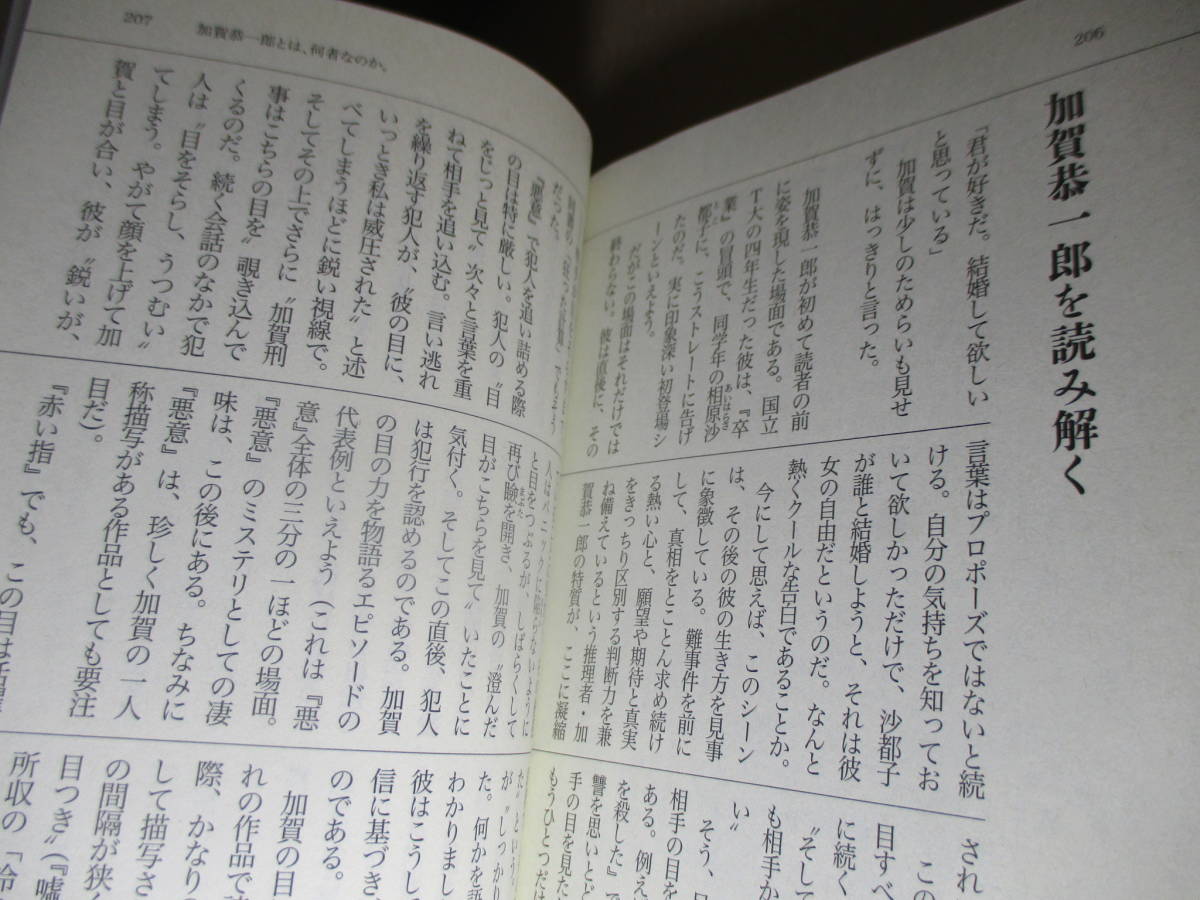 206
加賀恭一郎を読み解く
「君が好きだ。結婚して欲しい
と思っている」
加賀は少しのためらいも見せ
ずに、はっきりと言った。
加賀恭一郎が初めて読者の前
に姿を現した場面である。国立
T大の四年生だった彼は、『卒
業』の冒頭で、同学年の相原沙
都子に、こうストレートに告げ
たのだ。実に印象深い初登場シ
ーンといえよう。
だがこの場面はそれだけでは
終わらない。彼は直後に、その
言葉はプロポーズではないと続
ける。自分の気持ちを知ってお
いて欲しかっただけで、沙都子
が誰と結婚しようと、それは彼
女の自由だというのだ。なんと
熱くクールな告白であることか。
今にして思えば、このシーン
は、その後の彼の生き方を見事
に象徴している。難事件を前に
して、真相をとことん求め続け
る熱い心と、願望や期待と真実
をきっちり区別する判断力を兼
ね備えているという推理者・加
賀恭一郎の特質が、ここに凝縮
され
この
目すべ
に続く
〝そして
も相手か
い〟
そう、
相手の目を
ある。例え
を殺した』で
讐を思いとど
手の目を見た
もうひとつだけ
207
加賀恭一郎とは、何者なのか。
だった。
『悪意』で犯人を追い詰める際
の目は特に厳しい。犯人の〝目
をじっと見て〟次々と言葉を重
ねて相手を追い込む。言い逃れ
を繰り返す犯人が、〝彼の目に、
いっとき私は威圧された〟と述
べてしまうほどに鋭い視線で。
そしてその上でさらに〝加賀刑
事はこちらの目を〟覗き込んで
くるのだ。続く会話のなかで犯
人は〝目をそらし、うつむい〟
てしまう。やがて顔を上げて加
賀と目が合い、彼が〝鋭いが、
と目をつぶるが、しばらくして
再び瞼を開き、加賀の〝澄んだ
目がこちらを見て〟いたことに
気付く。そしてこの直後、犯人
は犯行を認めるのである。加賀
の目の力を物語るエピソードの
代表例といえよう（これは『悪
意』全体の三分の一ほどの場面。
『悪意』のミステリとしての凄
味は、この後にある。ちなみに
『悪意』は、珍しく加賀の一人
称描写がある作品としても要注
目だ）。
『赤い指』でも、この目は活躍
が〝しっかり
た。何かを
わかりまし
彼はこうし
信に基づき
のである。
加賀の目
れの作品で
際、かなり
して描写さ
の間隔が狭く
目つき〟（『嘘
所収の「冷